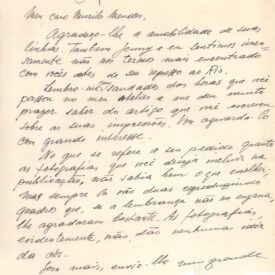 Meu caro Murilo Mendes,
Agradeço-lhe a amabilidade de suas
linhas. Tambem Jenny e eu sentimos imen-
samente não nos termos mais encontrado
com vocês antes de seu regresso ao Rio.
Lembro-me com saudades das horas que você
passou no meu atelier e me deu muito
prazer saber do artigo que você escreveu
sobre as suas impressões. Vou aguardá-lo
com grande interesse.
No que se refere a seu pedido quanto
as fotografias que você deseja incluir na
publicação, não sabia bem o que escolher;
mas sempre lá vão duas reproduzindo
quadros que, se a lembrança não me engana,
lhe agradaram bastante. As fotografias,
evidentemente, não dão nenhuma idéia
da côr.
Sem mais, envio-lhe um grande